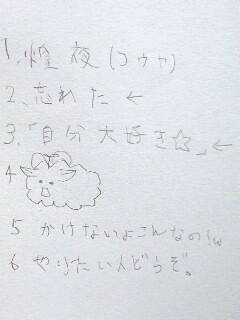 1、煌夜(コウヤ)
2、忘れた ←
3、「自分大好き☆」←
4
5 かけないよこんなの!w
6 やりたい人どうぞ。